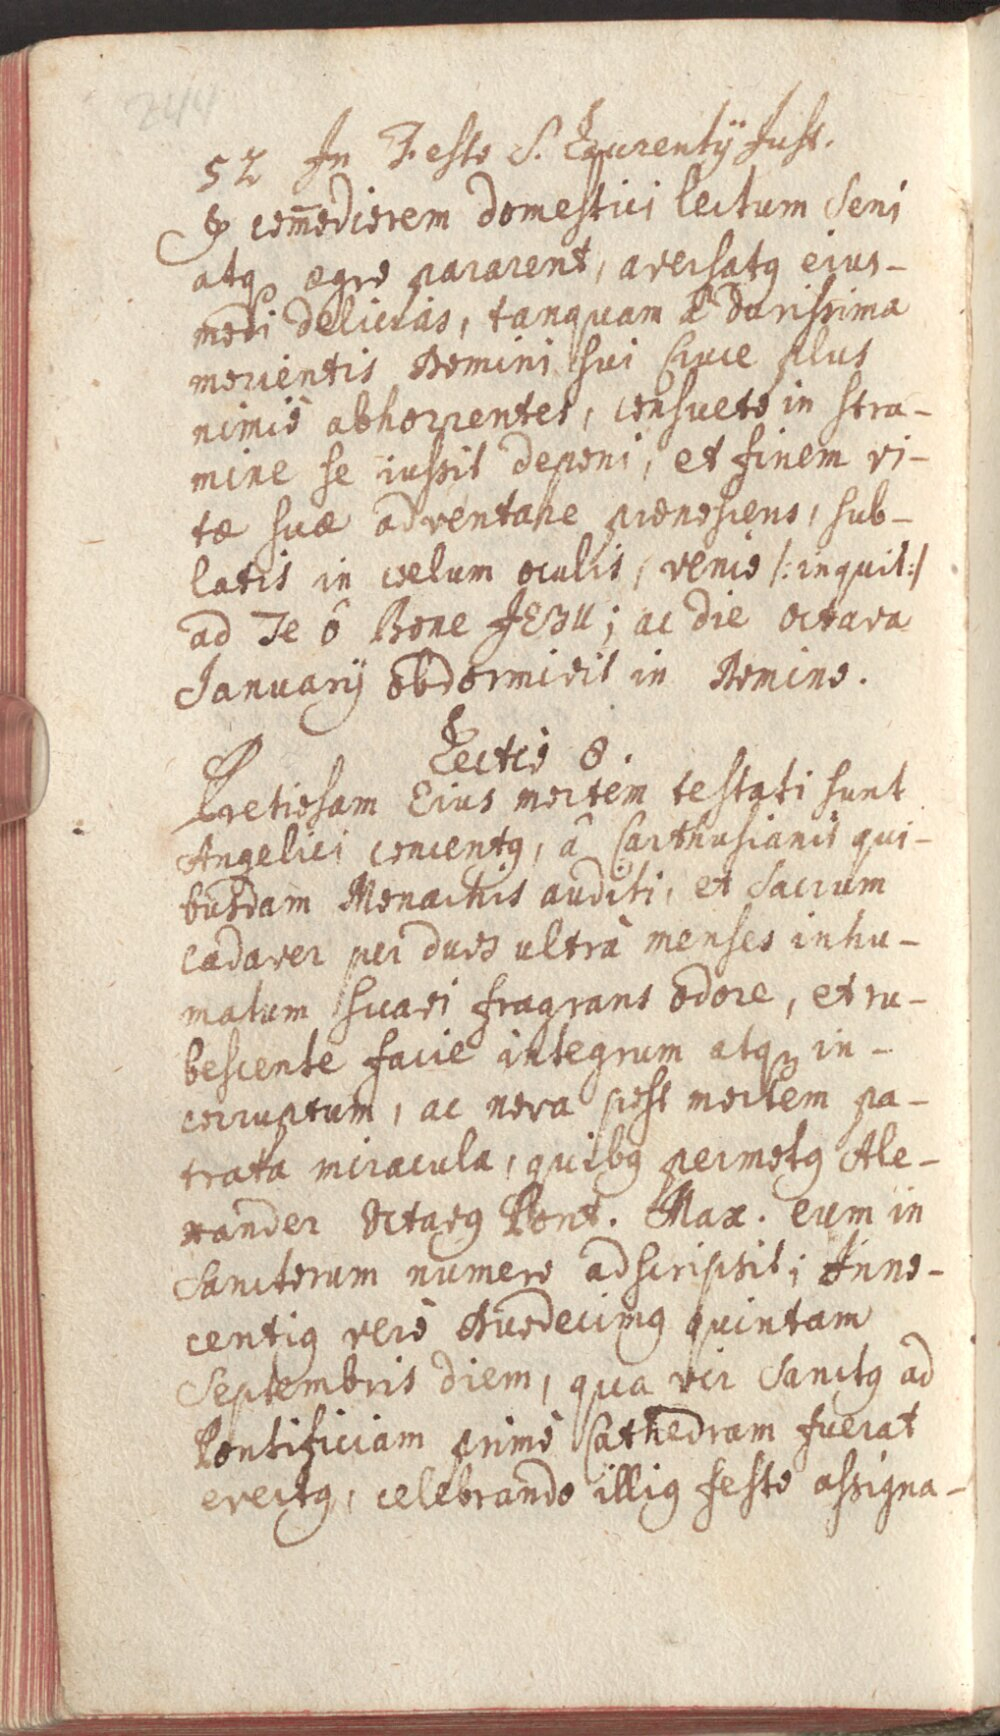 244
52 In Festo S. Laurentÿ Just.
& com̅odiorem domestici lectum Seni
atq₃ ægro pararent, aversatq eius-
modi delicias, tanquam â durissima
morientis Domini sui Cruce plus
nimiò abhorrentes, consueto in stra-
mine se iussit deponi, et finem vi-
tæ suæ adventare prænoscens, sub-
latis in cœlum oculis, venio /: inquit :/
ad Te ô Bone JESU; ac die octava
Januarÿ obdormivit in Domino.
Lectio 8.
Pretiosam Eius mortem testati sunt
Angelici concentq, â Carthusianis qui-
busdam Monachis auditi, et Sacrum
cadaver per duos ultrà menses inhu-
matum suavi fragrans odore, et ru-
bescente facie integrum atq₃ in-
corruptum, ac nova post mortem pa-
trata miracula, quibq permotq Ale-
xander Octavq Pont. Max. eum in
Sanctorum numero adscripsit; Inno-
centiq verò Duodecimq quintam
Septembris diem, qua vir Sanctq ad
Pontificiam primò Cathedram fuerat
evectq, celebrando illiq festo assigna-